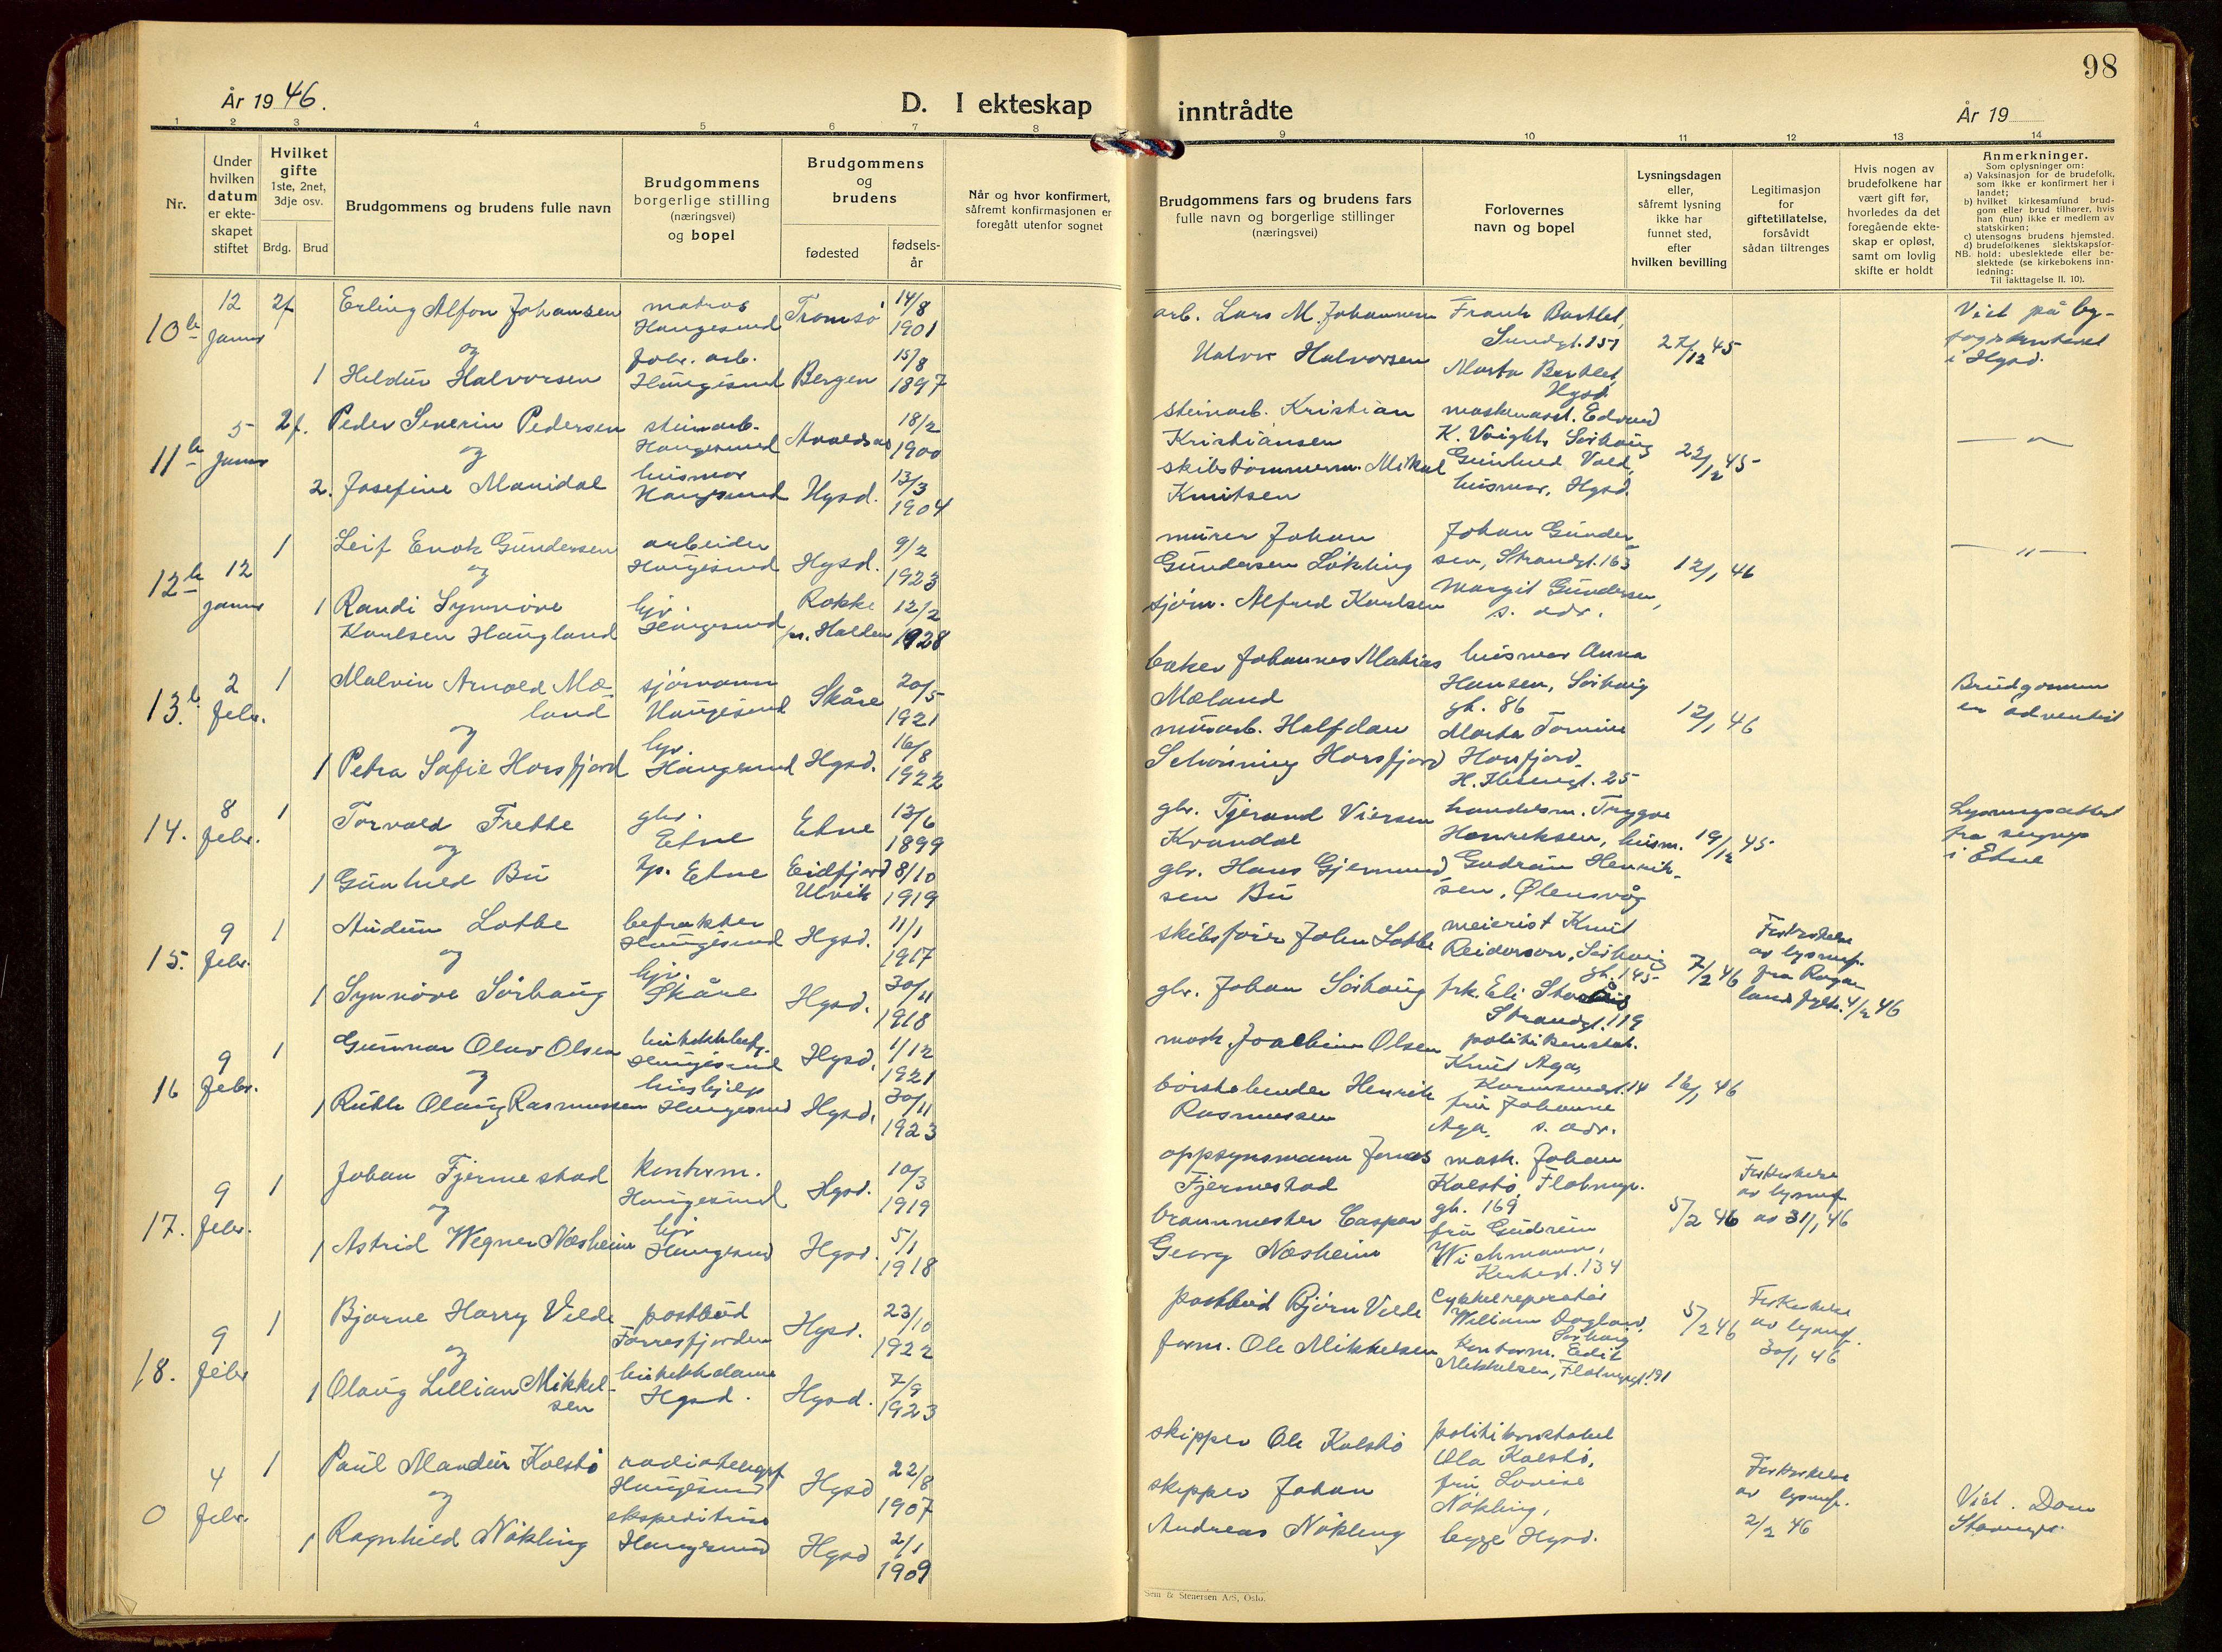 98
År 1946.
D. I ekteskap inntrådte
År 19
1 2 3 4 5 6 7 8 9 10 11 12 13 14
Nr.
Under
hvilken
datum
er ekte-
skapet
stiftet
Hvilket
gifte
1ste, 2net,
3dje osv.
Brdg. Brud
Brudgommens og brudens fulle navn
Brudgommens
borgerlige stilling
(næringsvei)
og bopel
Brudgommens
og
brudens
fødested
fødsels-
år
Når og hvor konfirmert,
såfremt konfirmasjonen er
foregått utenfor sognet
Brudgommens fars og brudens fars
fulle navn og borgerlige stillinger
(næringsvei)
Forlovernes
navn og bopel
Lysningsdagen
eller,
såfremt lysning
ikke har
funnet sted,
efter
hvilken bevilling
Legitimasjon
for
giftetillatelse,
forsåvidt
sådan tiltrenges
Hvis nogen av
brudefolkene har
vært gift før,
hvorledes da det
foregående ekte-
skap er opløst,
samt om lovlig
skifte er holdt
Anmerkninger.
Som oplysninger om:
a) Vaksinasjon for de brudefolk,
som ikke er konfirmert her i
landet;
b) hvilket kirkesamfund brud-
gom eller brud tilhører, hvis
han (hun) ikke er medlem av
statskirken;
c) utensogns brudens hjemsted.
d) brudefolkenes slektskapsfor-
hold: ubeslektede eller be-
slektede (se kirkebokens inn-
ledning:
NB.
Til iakttagelse II. 10).
10b 12 januar 2f Erling Alfon Johansen matros Haugesund Tromsø 14/8 1901
og
1 Heldur Halvorsen fabr. arb. Haugesund Bergen 15/8 1897
arb. Lars M. Johannesen
Halvor Halvorsen
Frank Barthel,
Sundgt. 151
Marta Barthel,
Hgsd.
27/12 45
Viet på by-
fogdkontoret
i Hgsd.
11b 5 januar 2f. Peder Severin Pedersen steinarb. Haugesund Avaldsnes 18/2 1900
og
2. Josefine Manidal husmor Haugesund Hgsd. 13/3 1904
steinarb. Kristian
Kristiansen
skibstømmerm. Mikal
Knutsen
maskinasst. Edvard
K. Voight, Sørhaug
Gunhild Vold,
husmor, Hgsd.
22/12 45
— " —
12b 12 januar 1 Leif Enok Gundersen arbeider Haugesund Hgsd. 9/2 1923
og
1 Randi Synnøve
Karlsen Haugland hjv. Haugesund Rokke pr. Halden 12/2 1928
murer Johan
Gundersen Løkling
sjøm. Alfred Karlsen
Johan Gunder-
sen, Strandgt. 163
Margit Gundersen,
s. adr.
12/1 46
— " —
13.b 2 febr. 1 Malvin Arnold Mæ-
land sjømann Haugesund Skåre 20/5 1921
og
1 Petra Sofie Horsfjord hjv. Haugesund Hgsd. 16/8 1922
baker Johannes Matias
Mæland
murarb. Halfdan
Schønning Horsfjord
husmor Anna
Hansen, Sørhaug
gt. 86
Marta Tomine
Horsfjord
25
12/1 46
Brudgommen
er adventist
14. 8 febr. 1 Torvald Frette gbr. Etne Etne 13/6 1899
og
1 Gunhild Bu hp. Etne Eidfjord Ulvik 8/10 1919
gbr. Tjerand Viersen
Kvandal
gbr. Hans Gjermund-
sen Bu
handelsm. Trygve
Henriksen, husm.
Gudrun Henrik-
sen, Ølensvåg
19/12 45
Lysningsattest
fra sognepr
i Etne
15. 9 febr. 1 Audun Lothe befrakter Haugesund Hgsd. 11/1 1917
og
1 Synnøve Sørhaug hjv. Skåre Hgsd. 30/11 1918
skibsfører John Lothe
gbr. Johan Sørhaug
meierist Knut
Reiderson, Sørhaug
gt. 145
frk. Eli
Strandgt. 119
7/2 46
av lysnsf.
fra Roga-
land fylke. 4/2 46
16 9 febr. 1 Gunnar Olav Olsen butikkbetj. Haugesund Hgsd. 1/12 1921
og
1 Ruth Olaug Rasmussen hushjelp Haugesund Hgsd. 30/11 1923
mask. Joachim Olsen
børstebinder Henrik
Rasmussen
politikonstab.
Knut Aga,
Karmsundgt. 14
fru Johanne
Aga, s. adr.
16/1 46
17. 9 febr. 1 Johan Fjermestad kontorm. Haugesund Hgsd. 10/3 1919
og
1 Astrid Wegner Næsheim hjv Haugesund Hgsd. 5/1 1918
oppsynsmann Jonas
Fjermestad
brannmester Caspar
Georg Næsheim
mask. Johan
Kolstø, Flotmyr-
gt. 169
fru Gudrun
Wichmann,
Kirkegt. 134
5/2 46
av lysnsf.
av 31/1 46
18. 9 febr 1 Bjarne Harry Velde postbud Førresfjorden Hgsd. 23/10 1922
og
1 Olaug Lillian Mikkel-
sen butikkdame Hgsd. Hgsd. 7/9 1923
postbud Bjørn Velde
form. Ole Mikkelsen
Cykkelreparatør
William Dagland,
Sørhaug
kontorm. Edit
Mikkelsen, Flotmyrgt. 191
5/2 46
av lysnsf.
30/1 46
0 4 febr. 1 Paul Mandur Kolstø radiotelegraf Haugesund Hgsd 22/8 1907
og
1 Ragnhild Nøkling ekspeditrise Haugesund Hgsd 2/1 1909
skipper Ole Kolstø
skipper Johan
Andreas Nøkling
politikonstabel
Ola Kolstø,
fru Lovise
Nøkling,
begge Hgsd.
av lysnsf.
2/2 46
Viet. Dom
Stavanger
Sem & Stenersen A/S, Oslo.